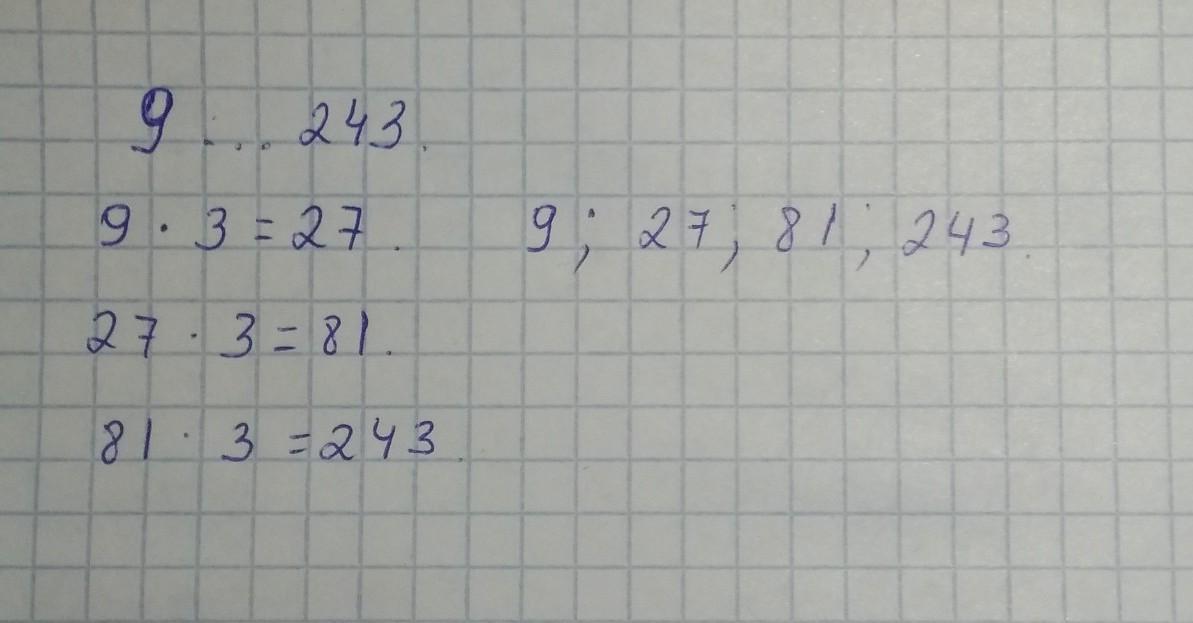 9 ... 243.
9 · 3 = 27. 9; 27; 81; 243.
27 · 3 = 81.
81 · 3 = 243.